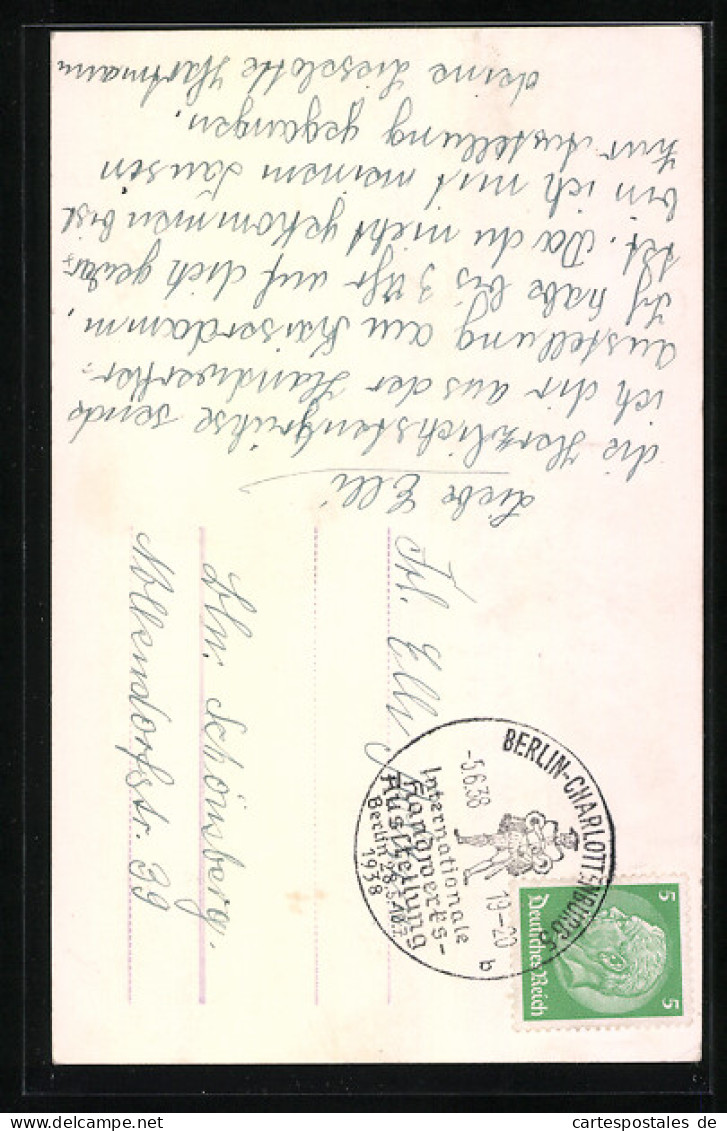 Liebe Elli
die Herzlichstengrühse sende
ich dir aus der Handwerker-
austellung am Kaiserdamm,
Ich habe bis 3 Uhr auf dich gewar-
tet. Da du nicht gekommen bist
bin ich mit meinem Cousin
zur Austellung gegangen.
deine Lieselotte Hartmann
Frl. Elli
Bln. Schönsberg.
Nollendorfstr. 39
BERLIN-CHARLOTTENBURG 5
-5.6.38 19-20
b
Internationale
Handwerks-
Ausstellung
Berlin 28.5-10.7.
1938
5 5
Deutsches Reich
www.delcampe.net
cartespostales de